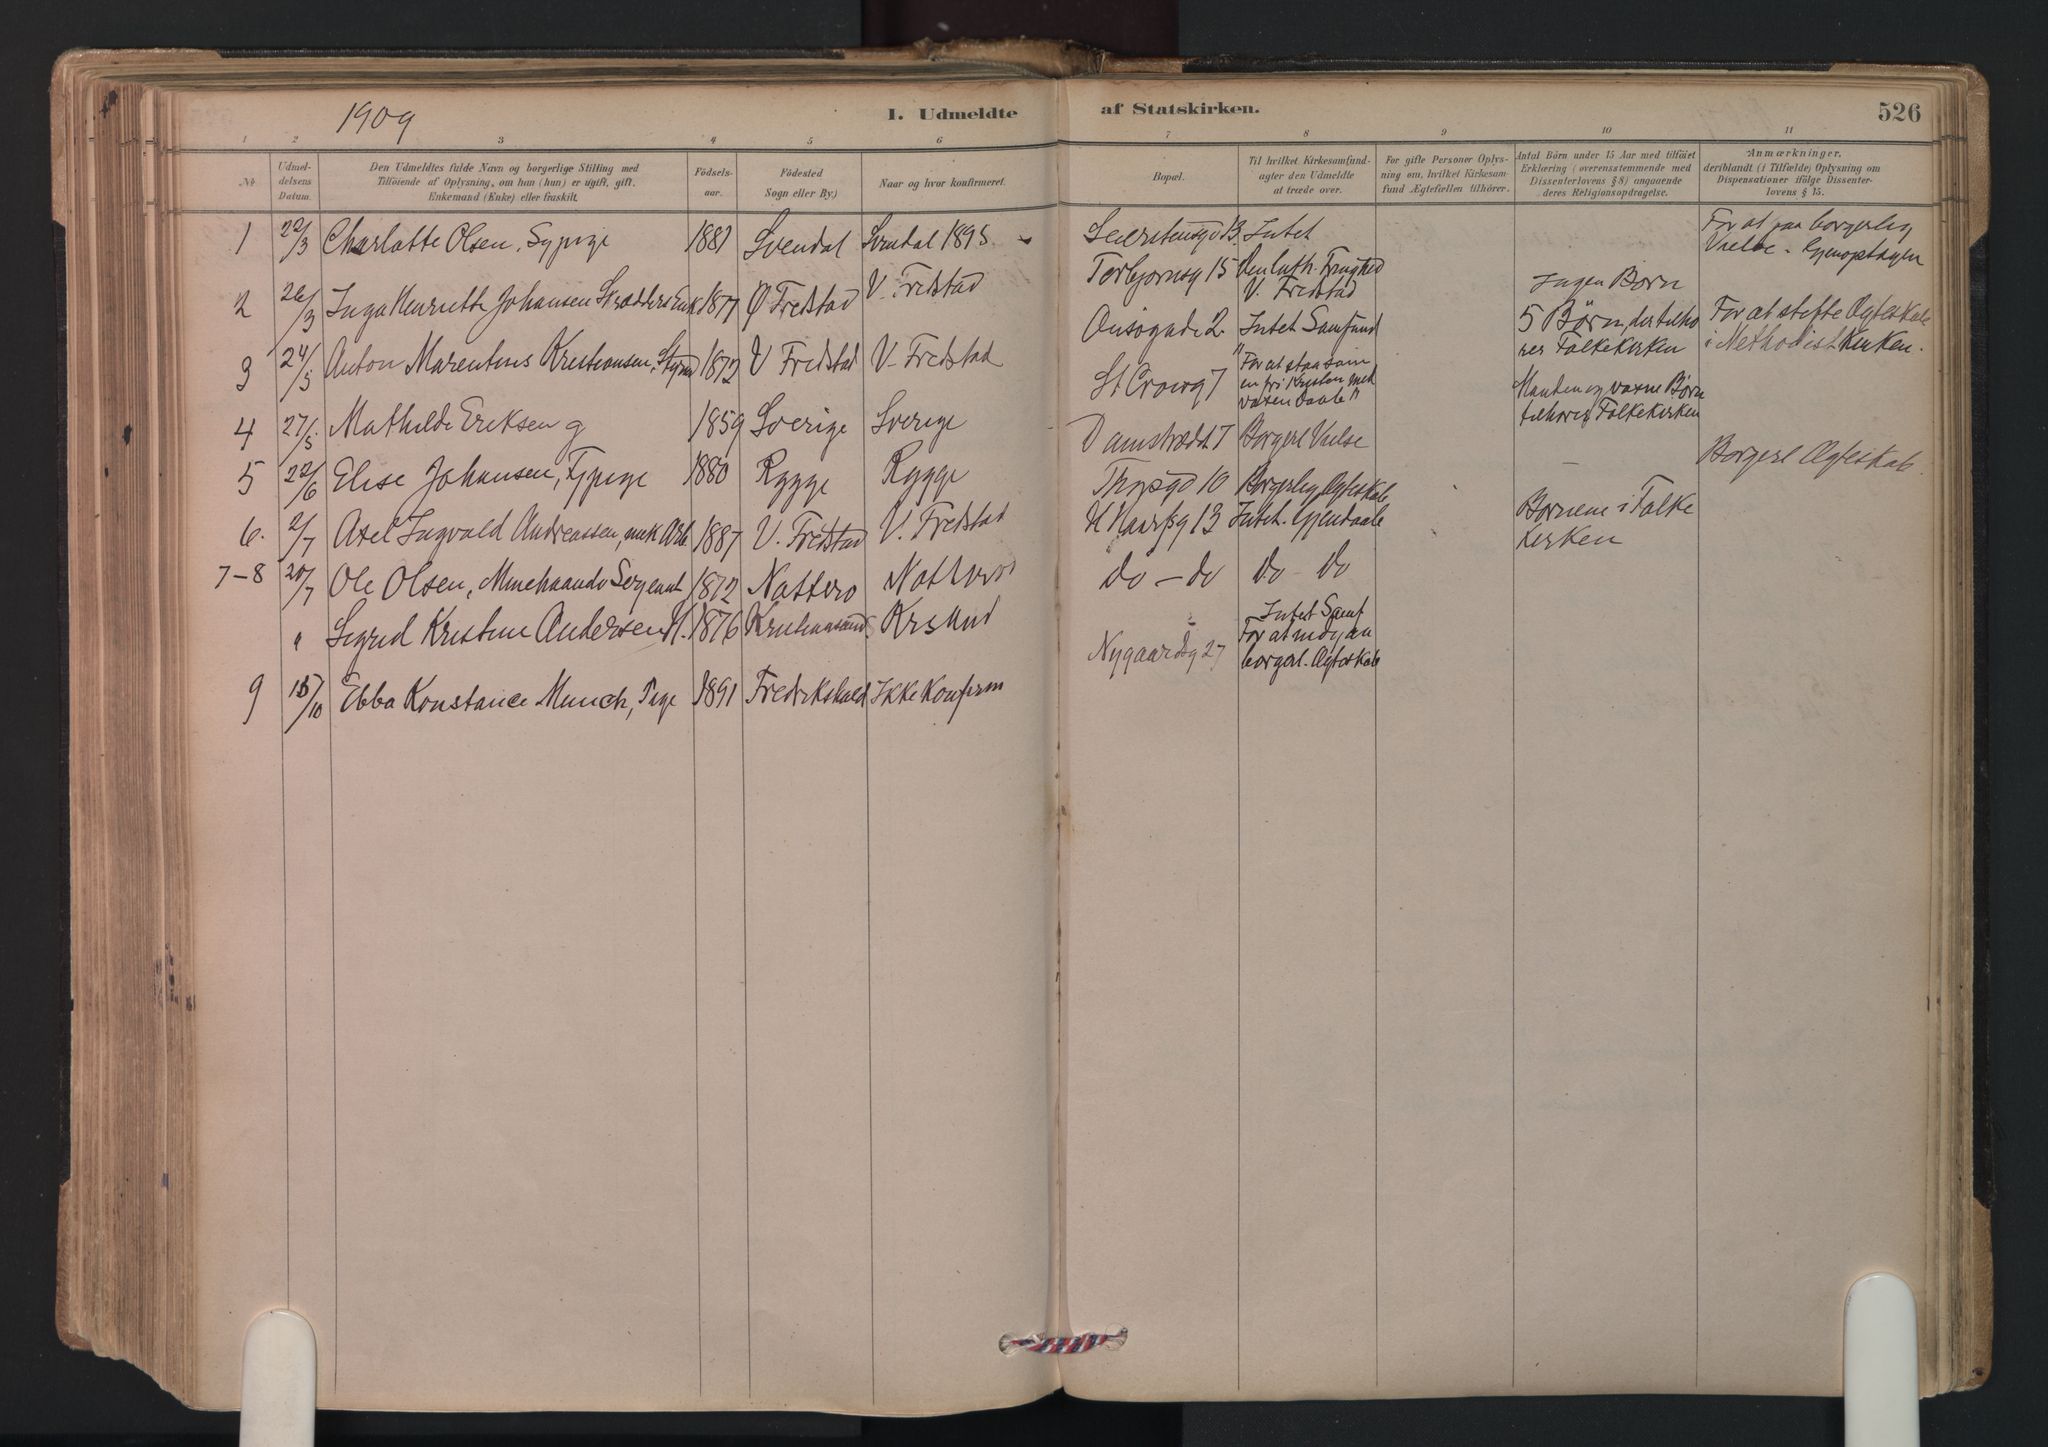 1909
I. Udmeldte af Statskirken.
526
1 2 3 4 5 6 7 8 9 10 11
Nr.
Udmeldelsens Datum.
Den Udmeldtes fulde Navn og borgerlige Stilling med
Tilføiende af Oplysning, om han (hun) er ugift, gift,
Enkemand (Enke) eller fraskilt.
Fødselsaar.
Fødested
Sogn eller By.)
Naar og hvor konfirmeret.
Bopæl.
Til hvilket Kirkesamfund
agter den Udmeldte
at træde over.
For gifte Personer Oplysning om, hvilket Kirkesamfund Ægtefællen tilhører.
Antal Børn under 15 Aar med tilføiet
Erklæring (overensstemmende med
Dissenterlovens § 8) angaaende
deres Religionsopdragelse.
Anmærkninger,
deriblandt (i Tilfælde) Oplysning om
Dispensationer ifølge Dissenterlovens § 15.
1 22/3 Charlotte Olsen, Sypige 1881 Svendal Svendal 1895 Intet For at faa borgerlig
Vielse
2 26/3 Inga Henriette Johansen Skrædders Enke 1877 Ø Fredstad V. Fredstad Torbjørnsg 15 Den luth. Frighed
V. Fredstad Ingen Børn
3 24/5 Anton Marentius Kristiansen 1872 V Fredstad V. Fredstad 2 Intet Samfund 5 Børn, der tilhø
rer Folkekirken For at stifte Ægteskab
i Methodistkirken.
4 27/5 Mathilde Eriksen g 1859 Sverige Sverige St Croixg 7 "For at staa som
en fri Kristen med
voxen Daab" Manden og voxne Børn
tilhører Folkekirken
5 22/6 Elise Johansen, 1880 Rygge Rygge Damstrædet 7 Borgerl Vielse — Borgerl Ægteskab.
6. 2/7 Axel Ingvald Andreassen, mek Arb 1887 V. Fredstad V. Fredstad 10 Borgerlig Ægteskab
7-8 20/7 Ole Olsen, Sergeant 1872 13 Intet. Gjendaab Børnene i Folke
kirken
" Sigrid Kristine Andersen H. 1876 Kristiansund Krsund do - do do - do
9 15/10 Ebba Konstance Munch, Pige 1891 Fredrikshald Ikke Konfirm Nygaardsg 27 Intet Samf
For at indgaa
borgerl. Ægteskab